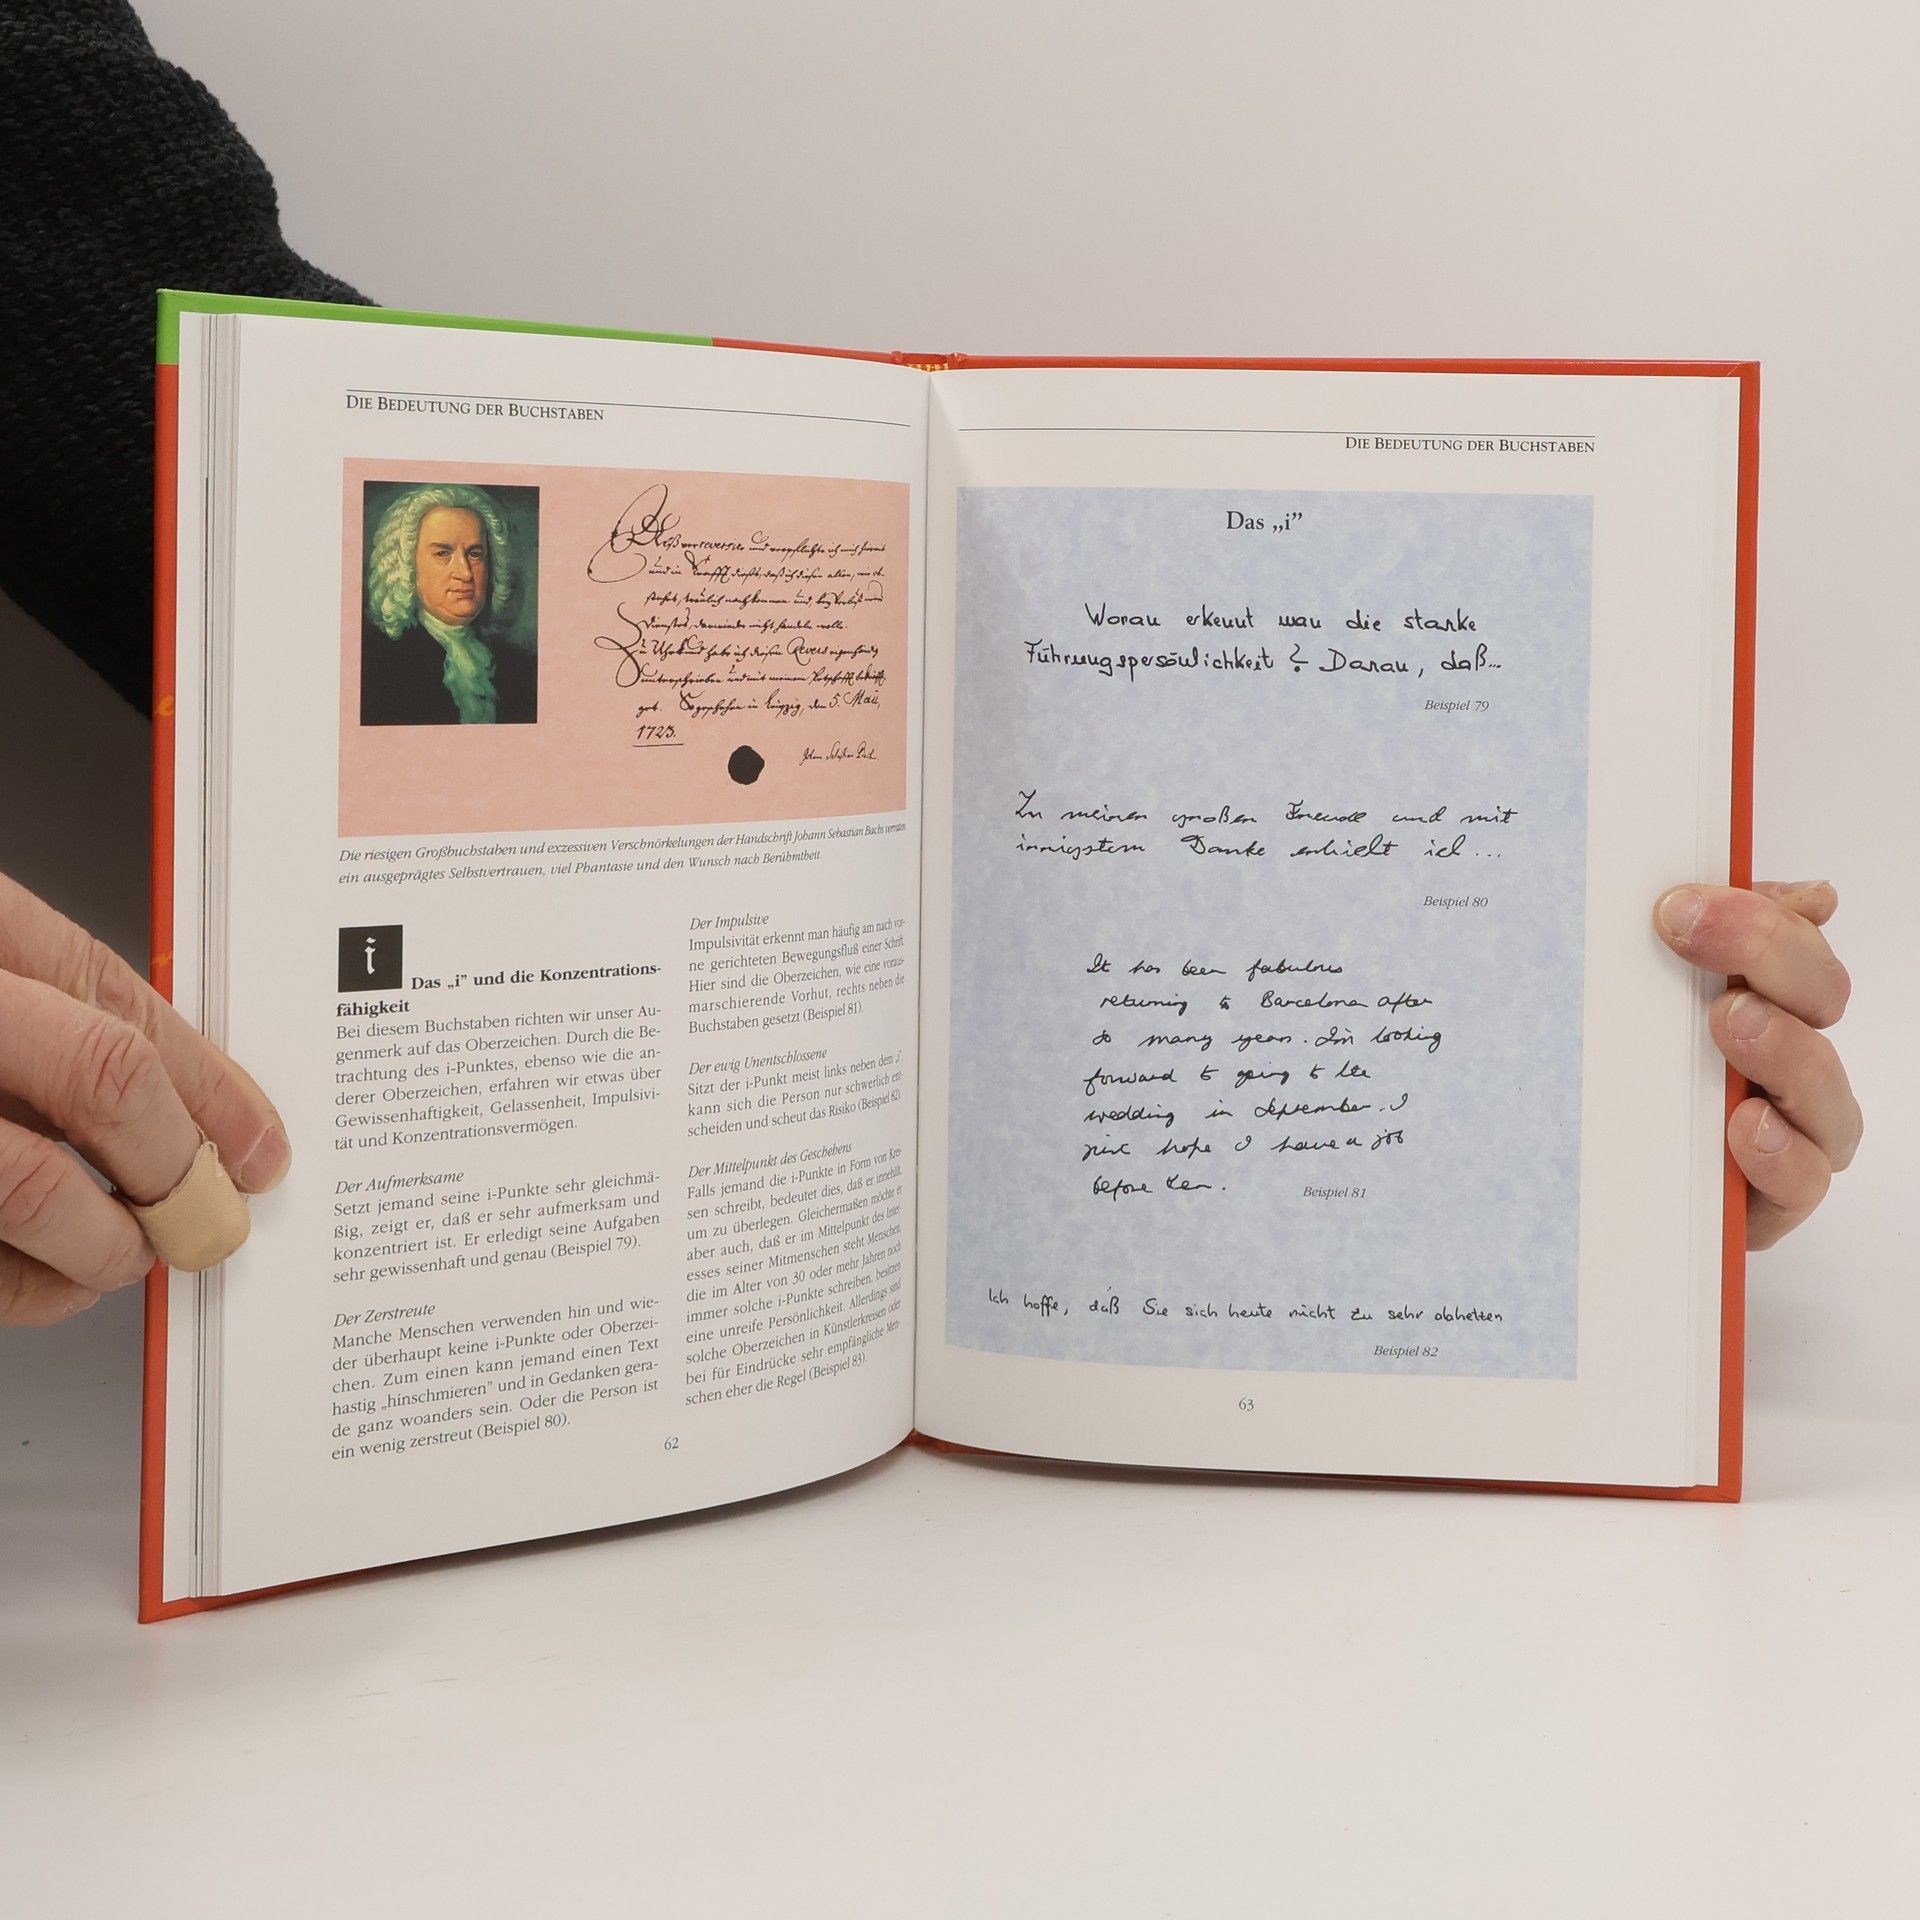 DIE BEDEUTUNG DER BUCHSTABEN
und in
1723.
Die riesigen Großbuchstaben und exzessiven Verschnörkelungen der Handschrift Johann Sebastian Bachs verraten
ein ausgeprägtes Selbstvertrauen, viel Phantasie und den Wunsch nach Berühmtheit.
i Das „i” und die Konzentrations-
fähigkeit
Bei diesem Buchstaben richten wir unser Au-
genmerk auf das Oberzeichen. Durch die Be-
trachtung des i-Punktes, ebenso wie die an-
derer Oberzeichen, erfahren wir etwas über
Gewissenhaftigkeit, Gelassenheit, Impulsivi-
tät und Konzentrationsvermögen.
Der Aufmerksame
Setzt jemand seine i-Punkte sehr gleichmä-
ßig, zeigt er, daß er sehr aufmerksam und
konzentriert ist. Er erledigt seine Aufgaben
sehr gewissenhaft und genau (Beispiel 79).
Der Zerstreute
Manche Menschen verwenden hin und wie-
der überhaupt keine i-Punkte oder Oberzei-
chen. Zum einen kann jemand einen Text
hastig „hinschmieren” und in Gedanken gera-
de ganz woanders sein. Oder die Person ist
ein wenig zerstreut (Beispiel 80).
Der Impulsive
Impulsivität erkennt man häufig am nach vor-
ne gerichteten Bewegungsfluß einer Schrift.
Hier sind die Oberzeichen, wie eine voraus-
marschierende Vorhut, rechts neben die
Buchstaben gesetzt (Beispiel 81).
Der ewig Unentschlossene
Sitzt der i-Punkt meist links neben dem „i”,
kann sich die Person nur schwerlich ent-
scheiden und scheut das Risiko (Beispiel 82).
Der Mittelpunkt des Geschehens
Falls jemand die i-Punkte in Form von Krei-
sen schreibt, bedeutet dies, daß er innehält,
um zu überlegen. Gleichermaßen möchte er
aber auch, daß er im Mittelpunkt des Inter-
esses seiner Mitmenschen steht. Menschen,
die im Alter von 30 oder mehr Jahren noch
immer solche i-Punkte schreiben, besitzen
eine unreife Persönlichkeit. Allerdings sind
solche Oberzeichen in Künstlerkreisen oder
bei für Eindrücke sehr empfängliche Men-
schen eher die Regel (Beispiel 83).
62
DIE BEDEUTUNG DER BUCHSTABEN
Das „i”
Woran erkennt man die starke
Führungspersönlichkeit? Daran, daß...
Beispiel 79
Zu meiner großen Freude und mit
innigstem Danke erhielt ich ...
Beispiel 80
It has been fabulous
returning to Barcelona after
so many years. I'm looking
forward to going to the
wedding in September. I
just hope I have a job
before then.
Beispiel 81
Ich hoffe, daß Sie sich heute nicht zu sehr abhetzen
Beispiel 82
63